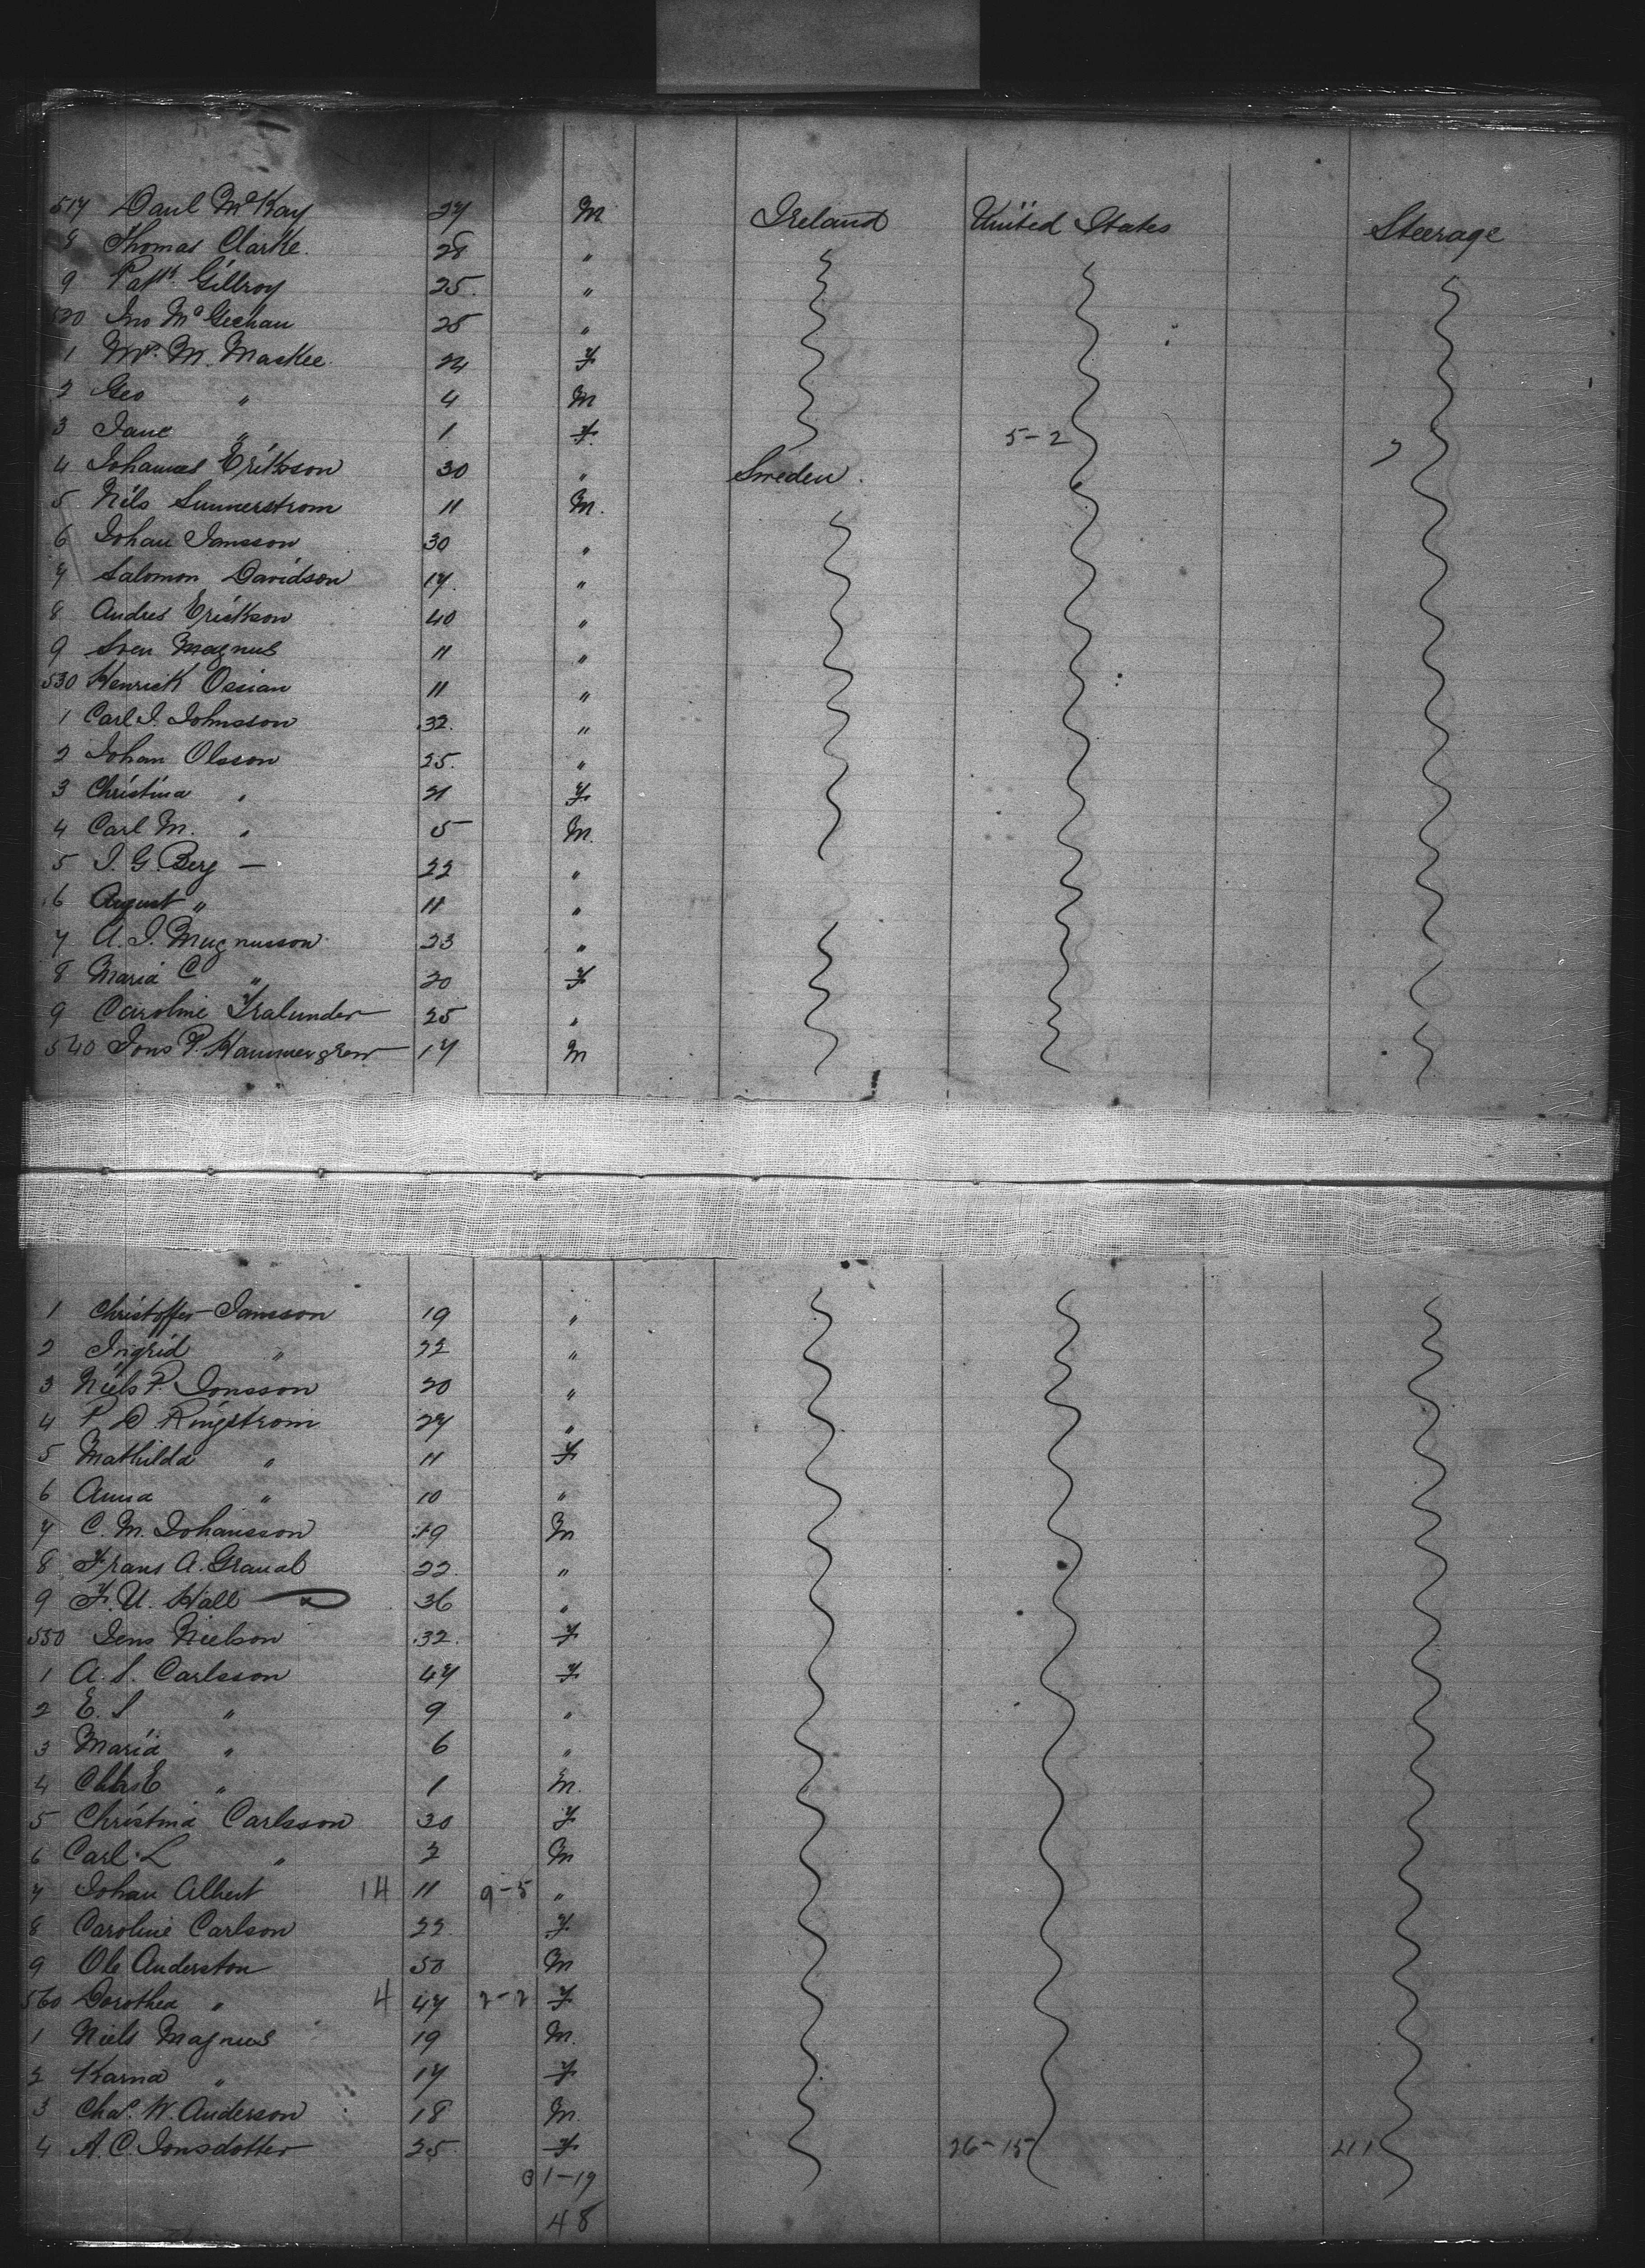 517 Danl McKay 27 M Ireland United States Steerage
8 Thomas Clarke. 28 "
9 Patk Gillroy 25. "
520 Jno McGechan 25 "
1 Mrs. M. Maskee. 24 F
2 Geo " 4 M
3 Jane " 1 F. 5-2 7
4 Johannes Erikson 30 " Sweden.
5 Nils Sunnerstrom 11 M.
6 Johan Jansson 30 "
7 Salomon Davidson 17. "
8 Andres Erickson 40 "
9 Sven Magnus 11 "
530 Henrick Ossian 11 "
1 Carl J. Johnsson 32. "
2 Johan Olsson 25. "
3 Christina " 21 F.
4 Carl M. " 5 M.
5 J. G. Berg — 22 "
6 August " 11 "
7 A. J. Magnusson 23 "
8 Maria C " 20 F
9 Caroline Tralunder 25 "
540 Jons P. Hammergren 17 M
1 Christoffer Jansson 19 "
2 Ingrid " 22 "
3 Niels P. Jonsson 20 "
4 P. D. Ringstrom 27 "
5 Mathilda " 11 F
6 Anna " 10 "
7 C. M. Johansson 19 M
8 Frans A. 22. "
9 F. U. Hall 36 "
550 Jens Nielson 32. F
1 A. S. Carlsson 47 F.
2 E. S " 9 "
3 Maria " 6 "
4 E " 1 M.
5 Christina Carlsson 30 F
6 Carl L " 2 M
7 Johan Albert 14 11 9-5 "
8 Caroline Carlson 22. F.
9 Ole Anderston 50 M
560 Dorothea " 4 47 2-2 F
1 Niels Magnus 19 M.
2 Karna " 17 F
3 Chas. W. Anderson 18 M.
4 A. C. Jonsdotter 25. F 26-15 41
31-19
48